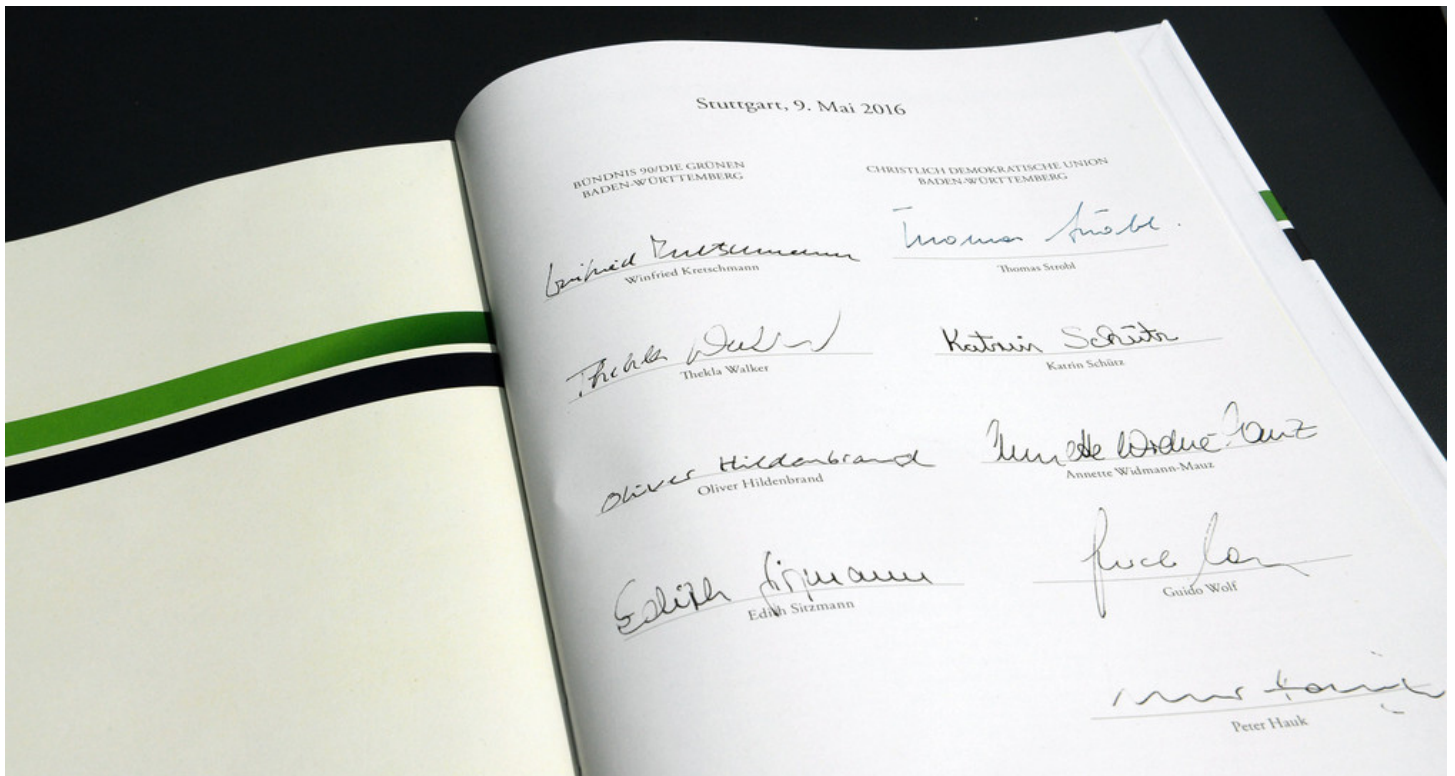 Stuttgart, 9. Mai 2016
BÜNDNIS 90/DIE GRÜNEN
BADEN-WÜRTTEMBERG
Winfried Kretschmann
Winfried Kretschmann
Thekla Walker
Thekla Walker
Oliver Hildenbrand
Oliver Hildenbrand
Edith Sitzmann
Edith Sitzmann
CHRISTLICH DEMOKRATISCHE UNION
BADEN-WÜRTTEMBERG
Thomas Strobl
Thomas Strobl
Katrin Schütz
Katrin Schütz
Annette Widmann-Mauz
Annette Widmann-Mauz
Guido Wolf
Peter Hauk